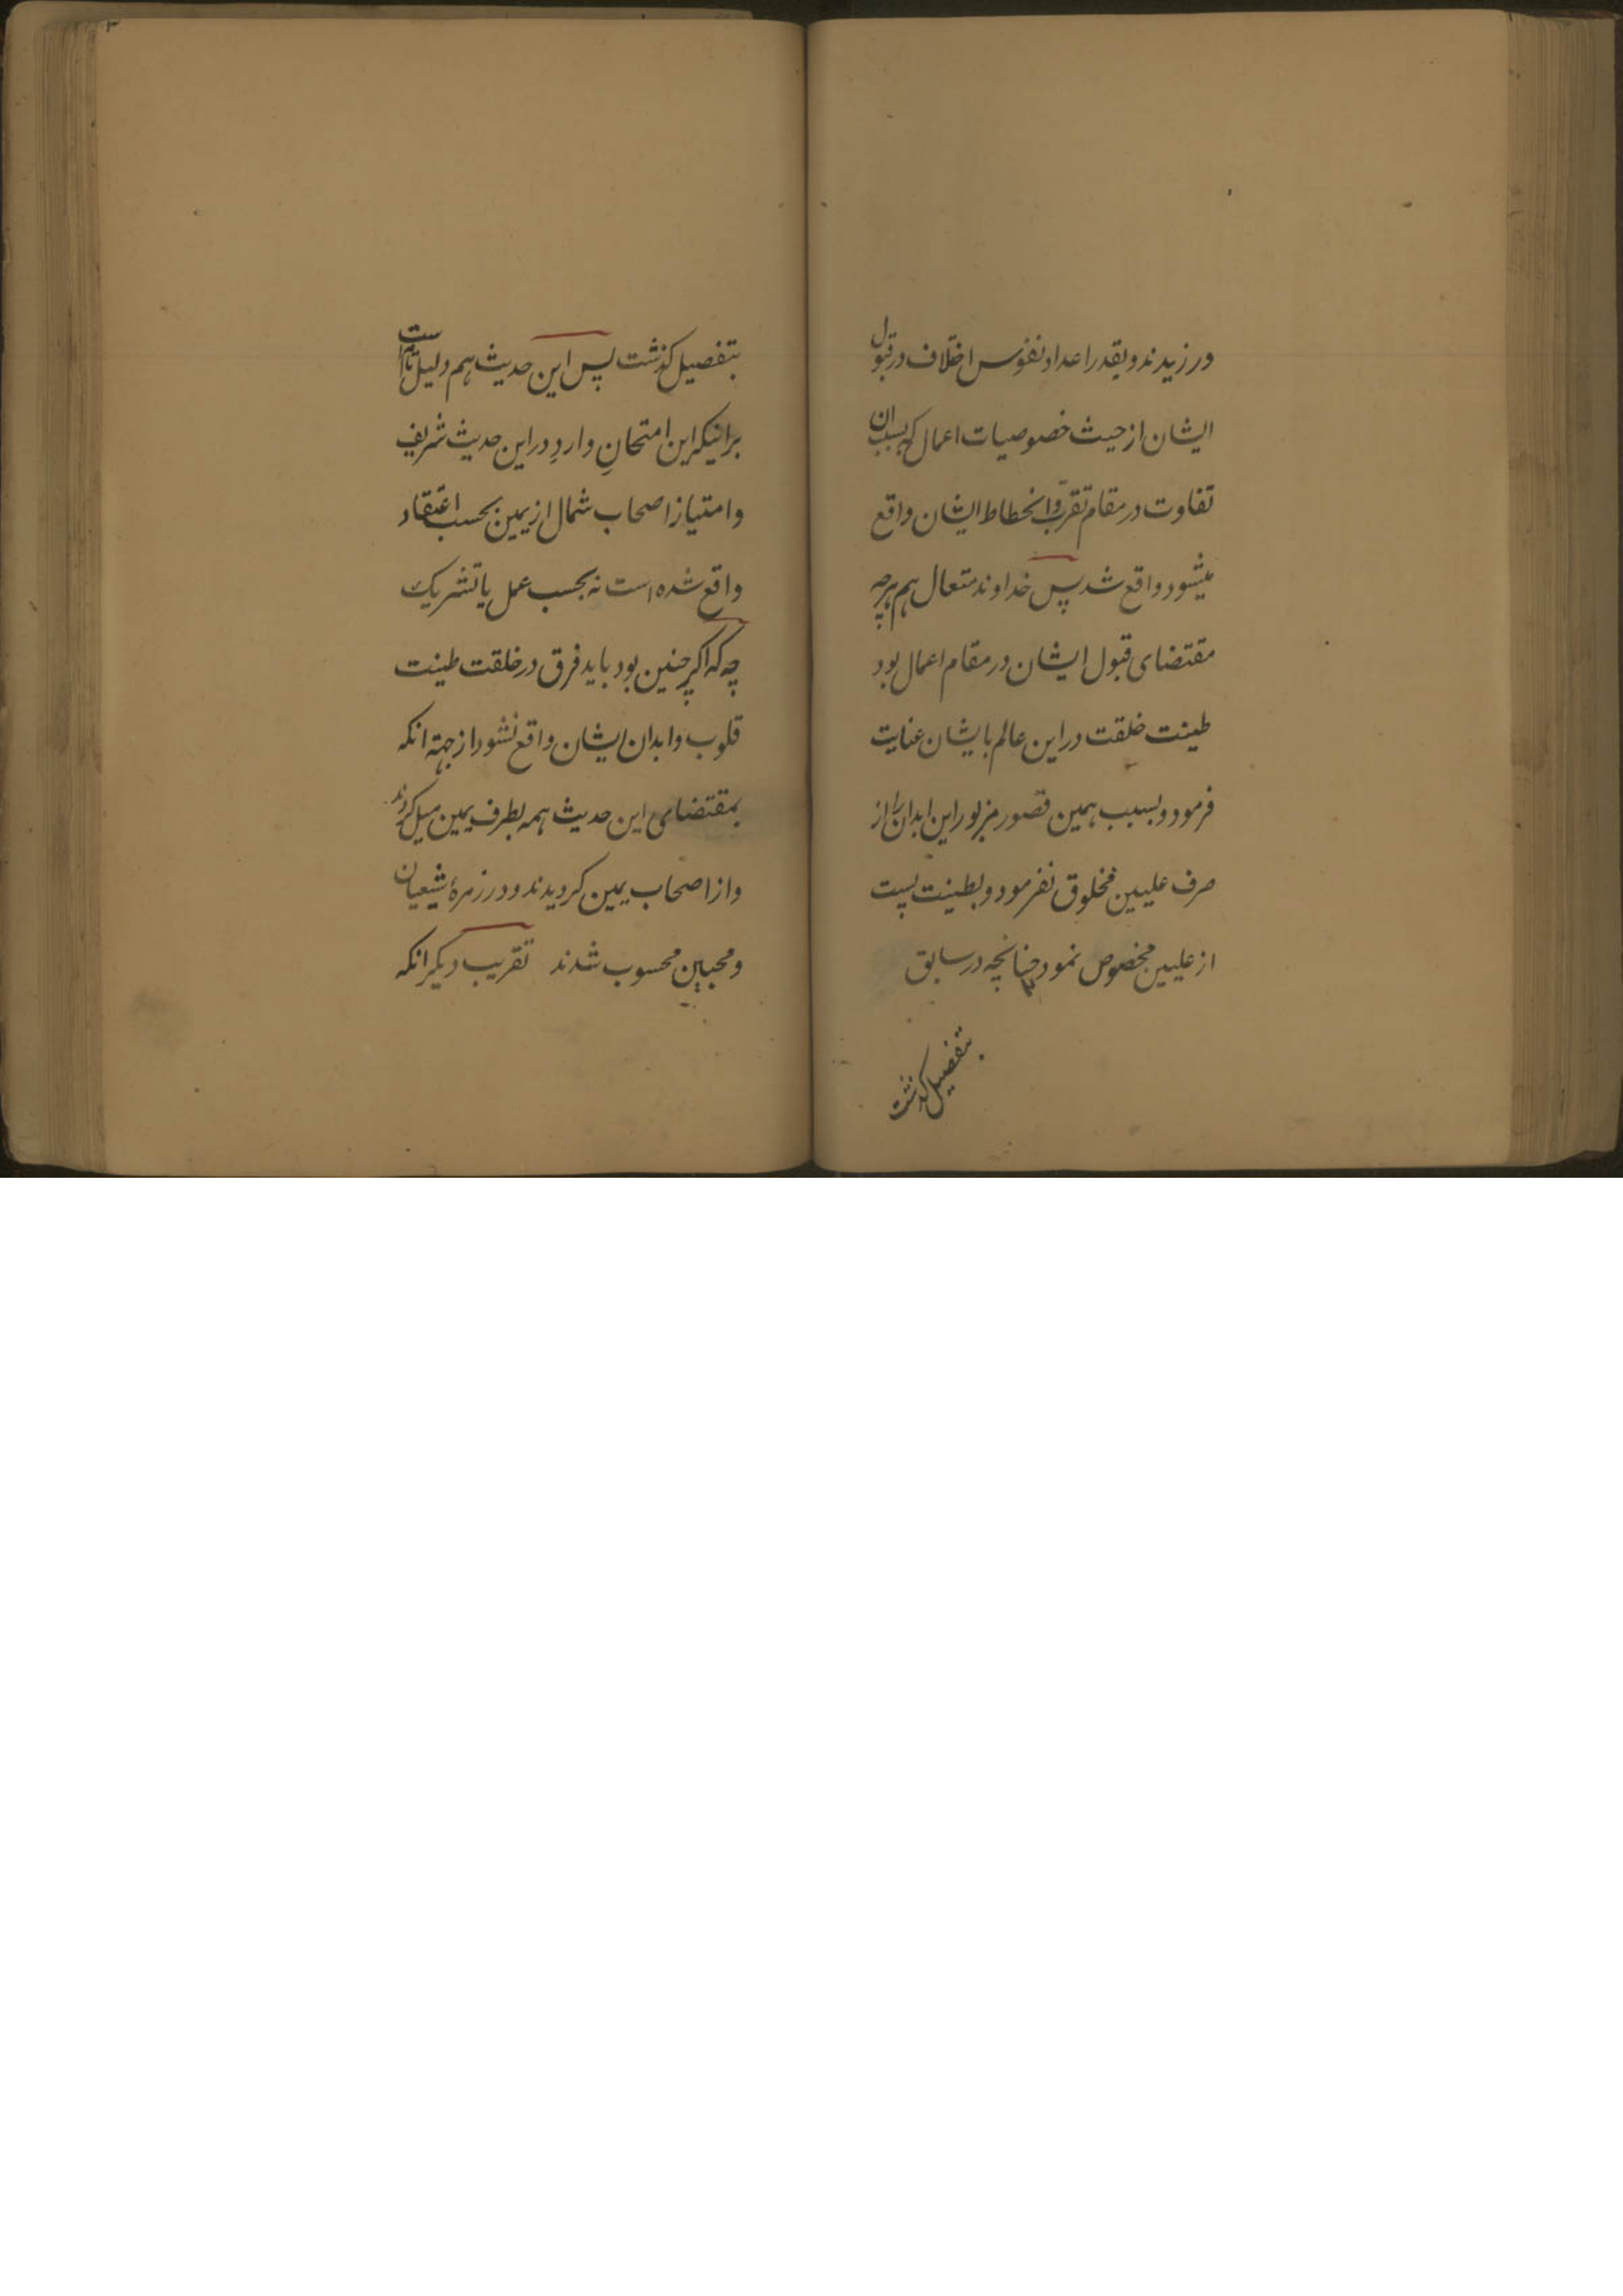 ورزیدند و بقدر اعداد نفوس اختلاف در قبول
ایشان از حیث خصوصیات اعمال که بسبب ان
تفاوت در مقام تقرب و انحطاط ایشان واقع
میشود واقع شد پس خداوند متعال هم هرچه
مقتضای قبول ایشان در مقام اعمال بود
طینت خلقت در این عالم بایشان عنایت
فرمود و بسبب همین قصور مزبور این ابدان را از
صرف علیین مخلوق نفرمود و بطینت پست
از علیین مخصوص نمود چنانچه در سابق
بتفصیل کذشت
بتفصیل کذشت پس این حدیث هم دلیل تام است
بر اینکه این امتحانِ واردِ در این حدیث شریف
و امتیاز اصحاب شمال از یمین بحسب اعتقاد
واقع شده است نه بحسب عمل یا تشریک
چه که اکر چنین بود باید فرق در خلقت طینت
قلوب و ابدان ایشان واقع نشود از جهة انکه
بمقتضای این حدیث همه بطرف یمین میل کردند
و از اصحاب یمین کردیدند و در زمرهٔ شیعیان
و محبین محسوب شدند تقریب دیکر انکه